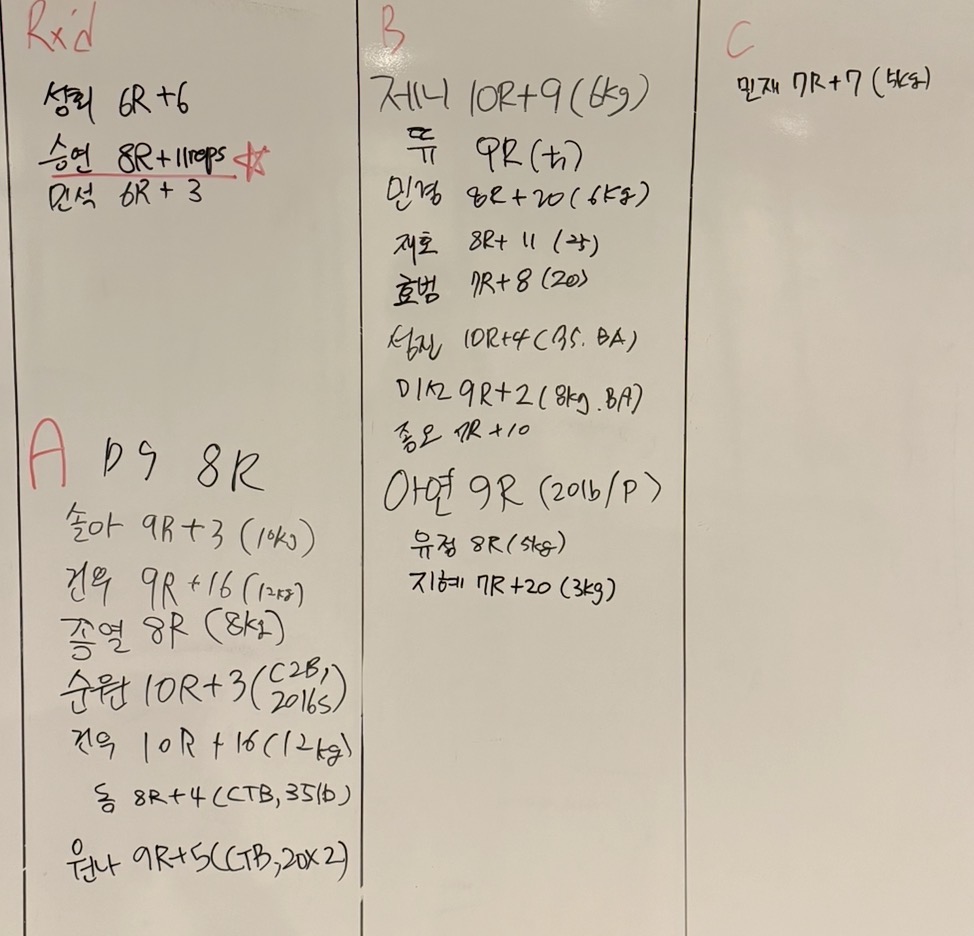 Rx'd
상희 6R+6
승연 8R+11reps
민석 6R+3
A DS 8R
솔아 9R+3 (10kg)
건욱 9R+16 (12kg)
종열 8R (8kg)
순원 10R+3 (C2B, 20lbs)
건욱 10R+16 (12kg)
돔 8R+4 (CTB, 35lb)
원나 9R+5 (CTB, 20x2)
B
제니 10R+9 (6kg)
뜌 9R
민경 8R+20 (6kg)
재호 8R+11
효범 7R+8 (20)
성진 10R+4 (35. BA)
미선 9R+2 (8kg. BA)
종오 7R+10
아연 9R (20lb/P)
유정 8R (5kg)
지혜 7R+20 (3kg)
C
민재 7R+7 (5kg)